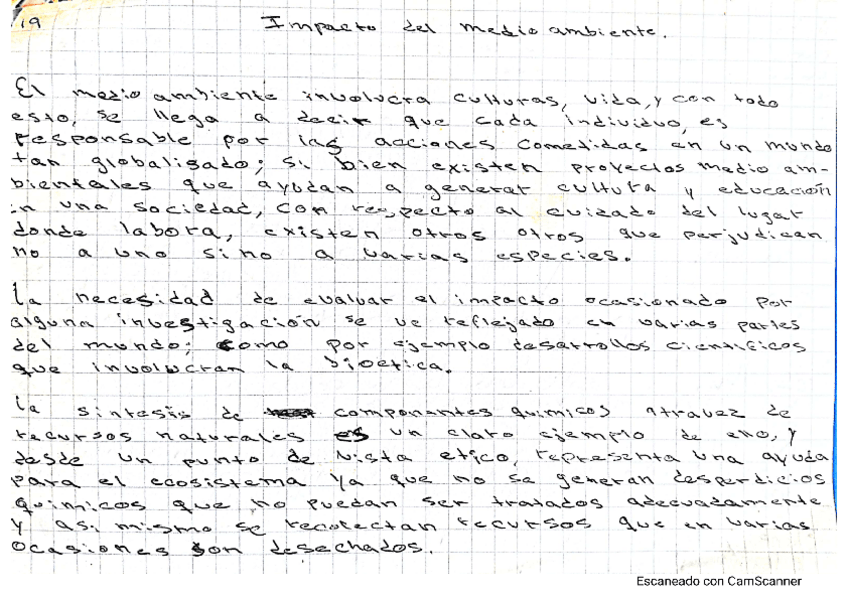 19
Impacto del medio ambiente.
El medio ambiente involucra culturas, vida, y con todo
esto, se llega a decir que cada individuo, es
responsable por las acciones cometidas en un mundo
tan globalisado; si bien existen proyectos medio am-
bientales que ayudan a generar cultura y educación
en una sociedad, con respecto al cuidado del lugar
donde labora, existen otros otros que perjudican
no a uno sino a varias especies.
La necesidad de evaluar el impacto ocasionado por
alguna investigación se ve reflejado en varias partes
del mundo; como por ejemplo desarrollos cientificos
que involucran la bioetica.
La sintesis de componantes quimicos atravez de
recursos naturales es un claro ejemplo de ello, y
desde un punto de vista etico, representa una ayuda
para el ecosistema ya que no se generan desperdicios
quimicos que no puedan ser tratados adecuadamente
y asi mismo se recolectan recursos que en varias
ocasiones son desechados.
Escaneado con CamScanner